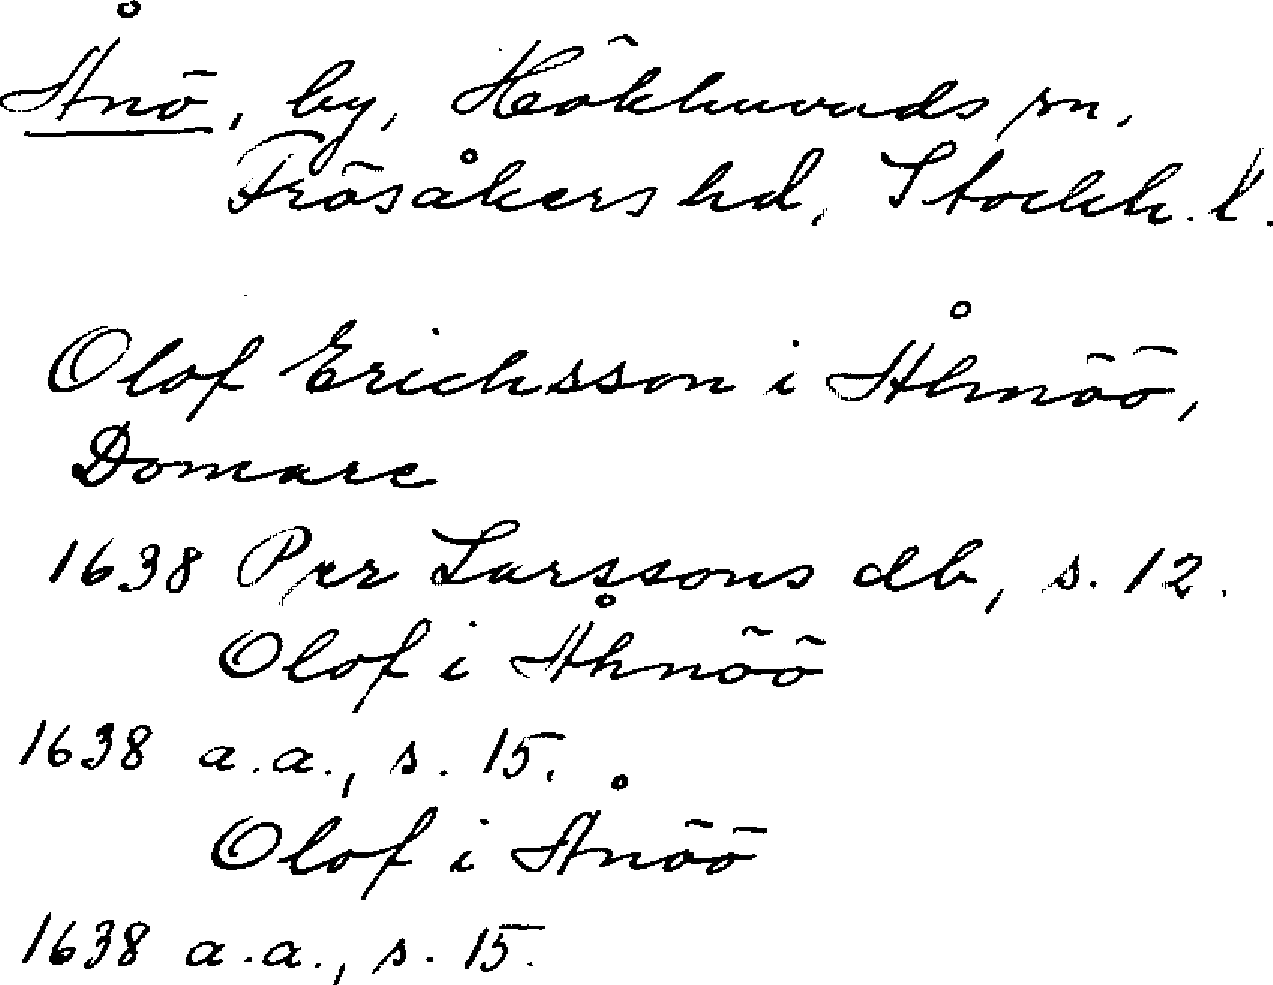 Ånö, by, Hökhuvuds sn,
Frösåkers hd, Stockh. l.
Olof Erichsson i Åhnöö,
Domare
1638 Per Larssons db, s. 12.
Olof i Åhnöö
1638 a.a., s. 15.
Olof i Ånöö
1638 a.a., s. 15.